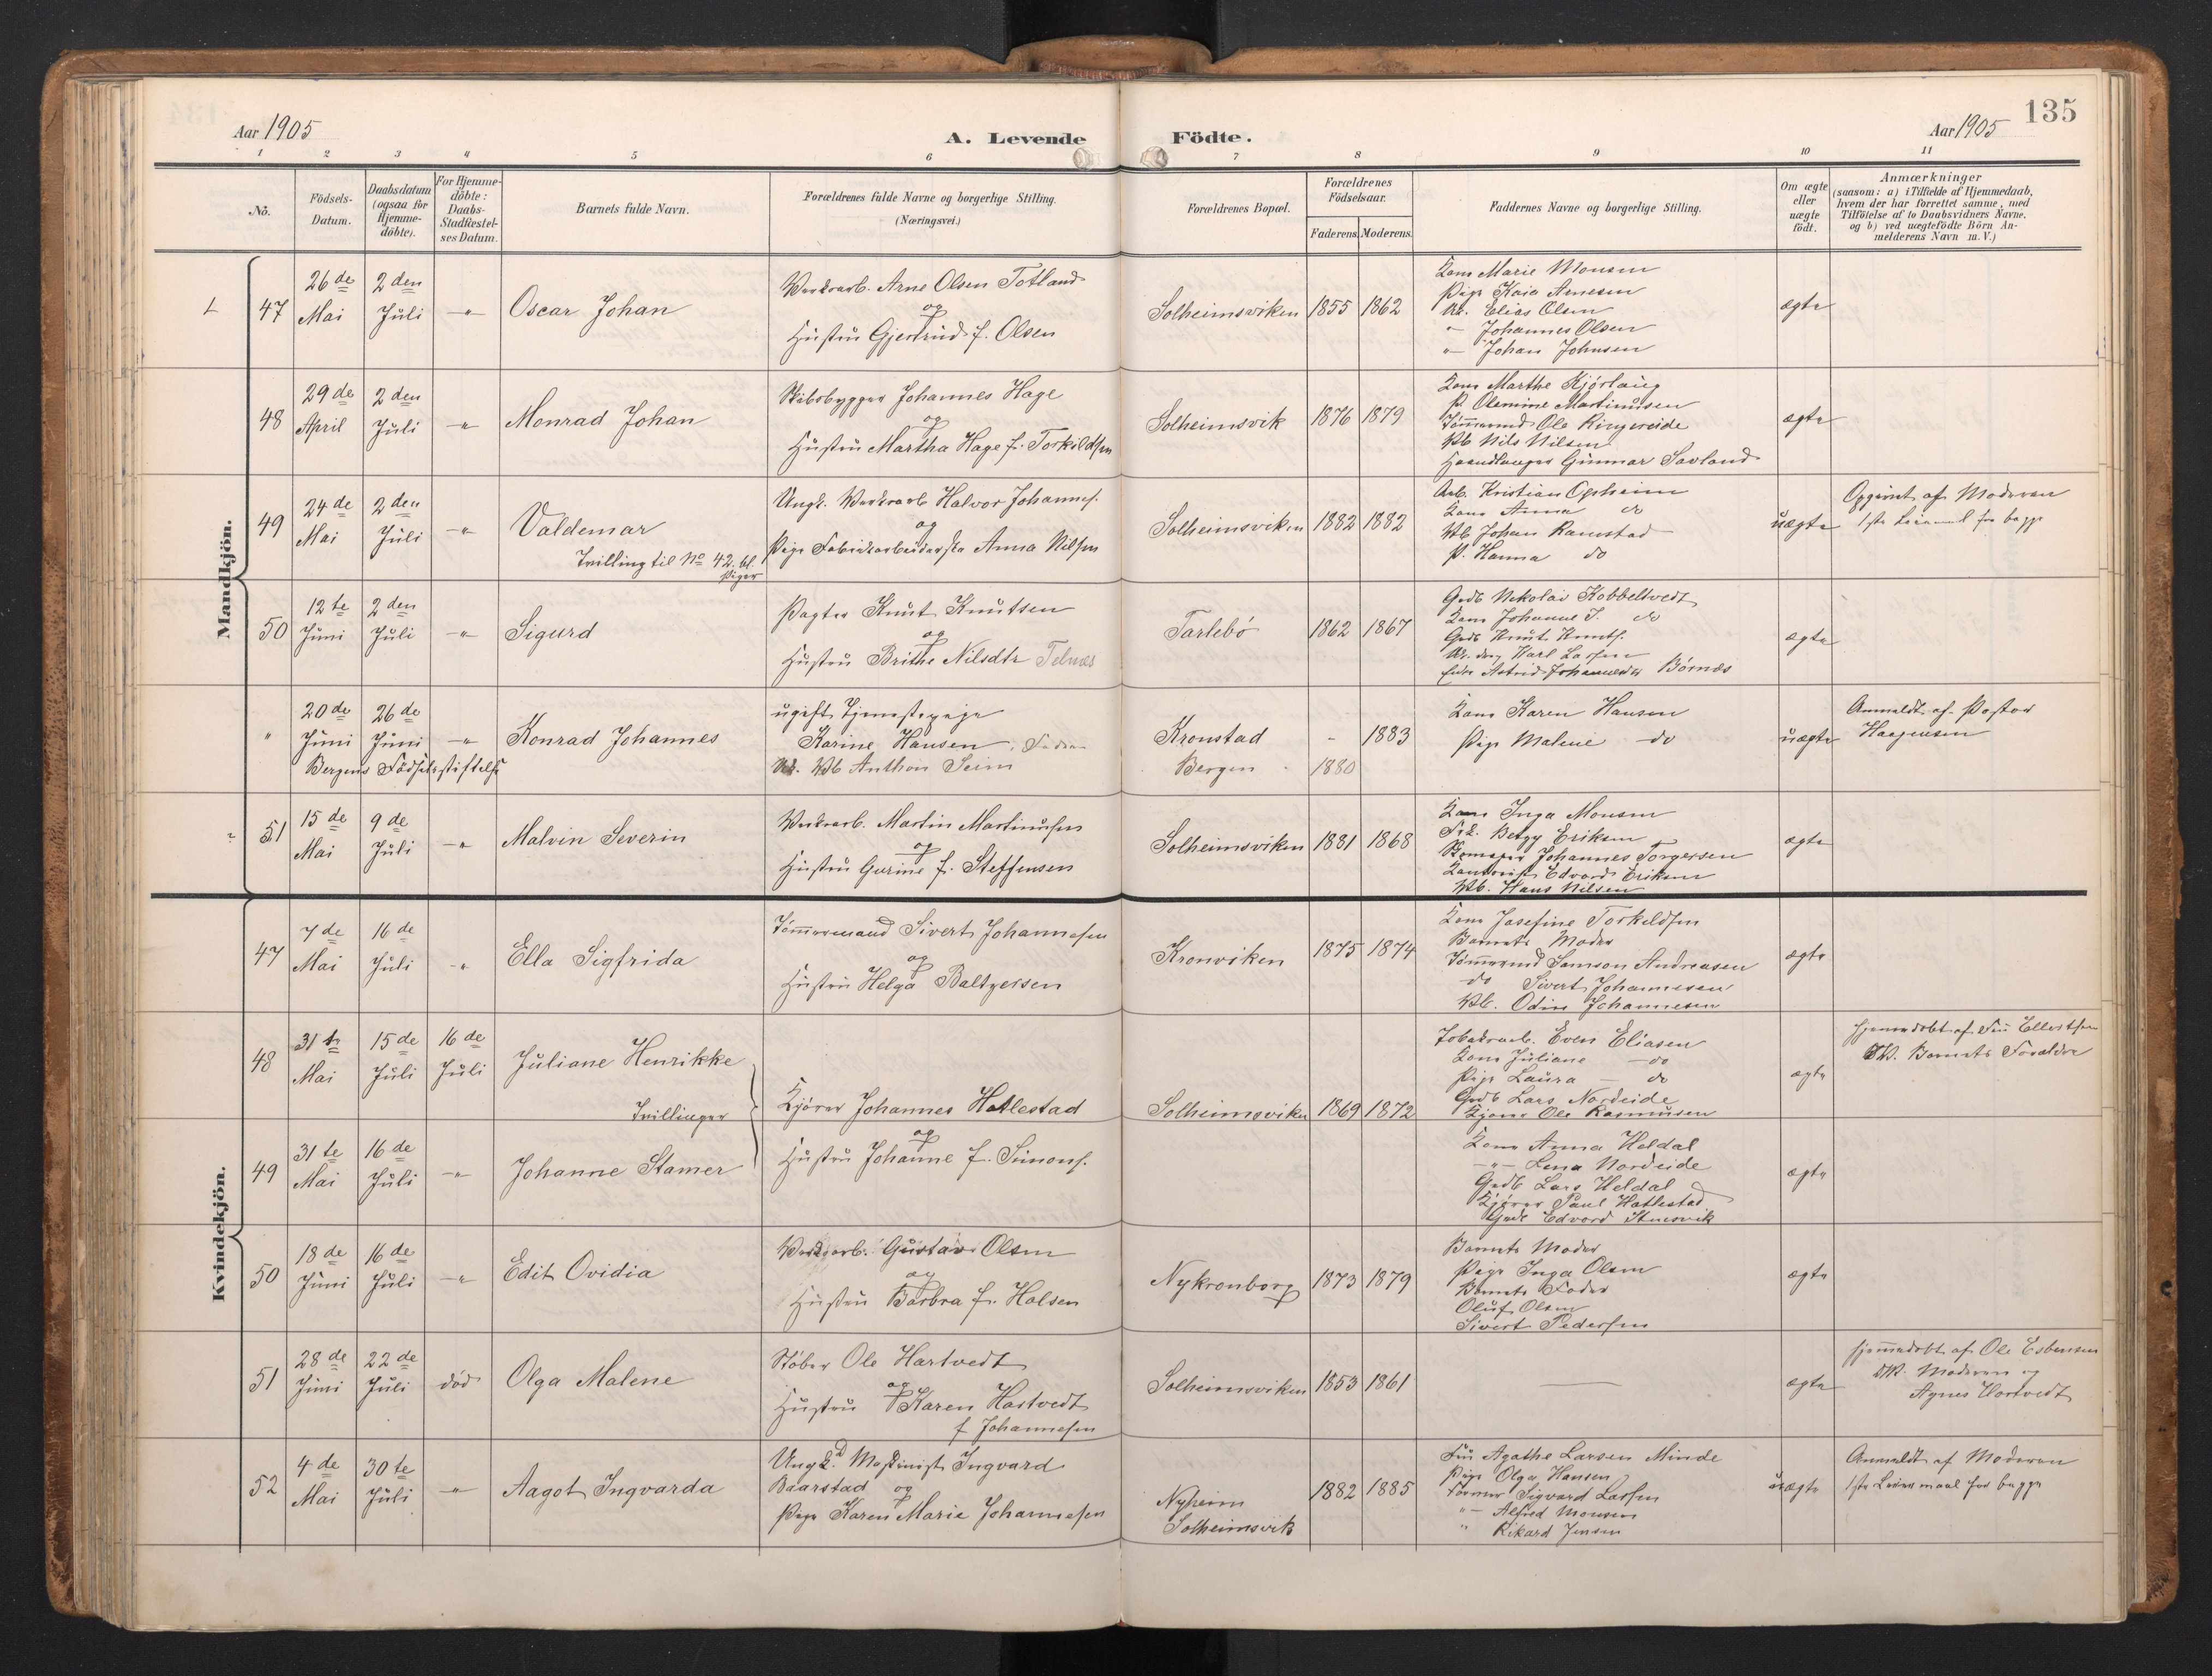 135
Aar 1905
A. Levende Födte.
Aar 1905
1 2 3 4 5 6 7 8 9 10 11
No.
Födsels-
Datum.
Daabsdatum
(ogsaa for
Hjemme-
döbte).
For Hjemme-
döbte:
Daabs-
Stadfæstel-
ses Datum.
Barnets fulde Navn.
Forældrenes fulde Navne og borgerlige Stilling.
(Næringsvei.)
Forældrenes Bopæl.
Forældrenes
Födselsaar.
Faderens. Moderens.
Faddernes Navne og borgerlige Stilling.
Om ægte
eller
uægte
födt.
Anmærkninger
(saasom: a) i Tilfælde af Hjemmedaab,
hvem der har forrettet samme, med
Tilföielse af to Daabsvidners Navne,
og b) ved uægtefödte Börn An-
melderens Navn m. V.)
Mandkjön.
47
26de
Mai
2den
Juli
-"-
Oscar Johan
Verksarb. Arne Olsen Totland
og
Hustru Gjertrud f. Olsen
Solheimsviken
1855
1862
Kone Marie Monsen
Pige Kaia Arnesen
Ar. Elias Olsen
" Johannes Olsen
" Johan Johnsen
ægte
48
29de
April
2den
Juli
-"-
Monrad Johan
Skibsbygger Johannes Hage
og
Hustru Martha Hage f. Torkildsen
Solheimsvik
1876
1879
Kone Marthe Kjørlaug
P. Olemine Martinusen
Tømmermd Ole Ringereide
Vb Nils Nilsen
Haandlanger Gunnar Søvland
ægte
49
24de
Mai
2den
Juli
-"-
Valdemar
Tvilling til No 42 bl.
Piger
Ungk. Verksarb Halvor Johannes.
og
Pige Fabrikarbeiderske Anna Nilsen
Solheimsviken
1882
1882
Arb. Kristian Opheim
Kone Anna do
Vb Johan Ramstad
P. Hanna do
uægte
Opgivet af Moderen
1ste Leiermaal for begge
50
12te
Juni
2den
Juli
-"-
Sigurd
Pagter Knut Knutsen
og
Hustru Brithe Nilsdtr Telnæs
Tarlebø
1862
1867
Grdb Nikolai Kobbeltvedt
Kone Johanne J. do
Grdb Knut Knuts.
Ar. dreng Karl Larsen
Enke Astrid Johannesdtr Børnæs
ægte
"
20de
Juni
26de
Juni
-"-
Bergens Födselsstiftelse
Konrad Johannes
ugift Tjenestepige
Karine Hansen, Fader
Uk. Vb Anthon Seim
Kronstad
Bergen
-
1880
1883
Kone Karen Hansen
Pige Malene do
uægte
Anmeldt af Pastor
Haagensen
51
15de
Mai
9de
Juli
-"-
Malvin Severin
Verksarb. Martin Martinusen
og
Hustru Gurine f. Steffensen
Solheimsviken
1881
1868
Kone Inga Monsen
Frk. Betzy Eriksen
Skomager Johannes Torgersen
Kontorist Edvard Eriksen
Vb. Hans Nilsen
ægte
Kvindekjön.
47
7de
Mai
16de
Juli
-"-
Ella Sigfrida
Tømmermand Sivert Johannesen
og
Hustru Helga Baltzersen
Kronviken
1875
1874
Kone Josefine Torkildsen
Barnets Moder
Tømmermd Samson Andreasen
do Sivert Johannesen
Vb. Odin Johannesen
ægte
48
31te
Mai
15de
Juli
16de
Juli
Juliane Henrikke
Tvillinger
Kjører Johannes Hatlestad
og
Hustru Johanne f. Simons.
Solheimsviken
1869
1872
Tobaksarb. Even Eliasen
Kone Juliane do
Pige Laura do
Grdb Lars Nordeide
Kjører Ole Rasmusen
ægte
Hjemmedøbt af Fru Ellertsen
DV. Barnets Forældre
49
31te
Mai
16de
Juli
-"-
Johanne Stamer
Kone Anna Heldal
-"- Lena Nordeide
Grdb Lars Heldal
Kjører Paul Hatlestad
Grdb Edvard
ægte
50
18de
Juni
16de
Juli
-"-
Edit Ovidia
Verksarb. Gustav Olsen
og
Hustru Barbra f. Halsen
Nykronborg
1873
1879
Barnets Moder
Pige Inga Olsen
Barnets Fader
Oluf Olsen
Sivert Pedersen
ægte
51
28de
Juni
22de
Juli
død
Olga Malene
Støber Ole Hartvedt
og
Hustru Karen Hartvedt
f Johannesen
Solheimsviken
1853
1861
ægte
Hjemmedøbt af Ole Esbensen
DV. Moderen og
Agnes Hartvedt
52
4de
Mai
30te
Juli
-"-
Aagot Ingvarda
Ungk. Maskinist Ingvard
Baarstad og
Pige Karen Marie Johannesen
Nyheim
Solheimsvik
1882
1885
Fru Agathe Larsen Minde
Pige Olga Hansen
Former Sigvard Larsen
" Alfred Monsen
" Rikard Jensen
uægte
Anmeldt af Moderen
1ste Leiermaal for begge